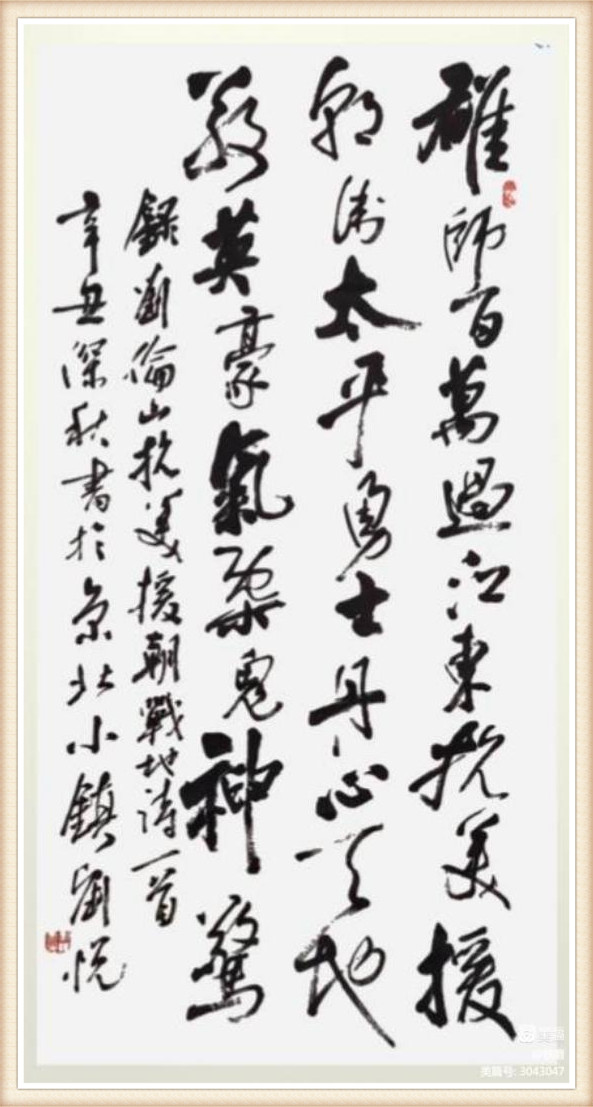 雄師百萬過江東抗美援
朝衛太平勇士丹心天地
敬英豪氣概鬼神驚
錄劉倫山抗美援朝戰地詩一首
辛丑深秋書於京北小鎮劉悅
美篇
美篇号: 3043047